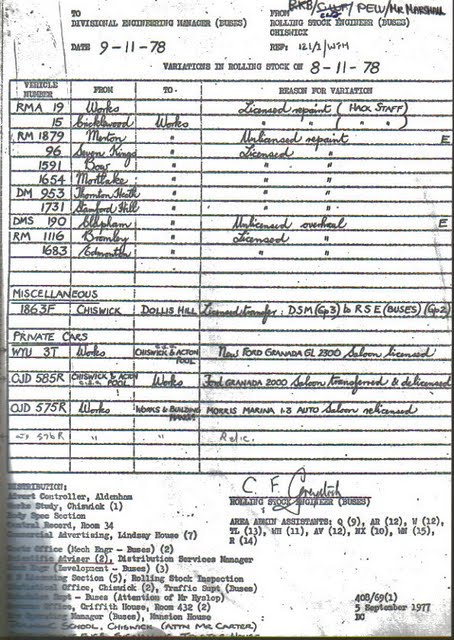 TO
DIVISIONAL ENGINEERING MANAGER (BUSES)
FROM
ROLLING STOCK ENGINEER (BUSES)
CHISWICK
DATE 9-11-78
REF: 121/2/WPH
VARIATIONS IN ROLLING STOCK ON 8-11-78
VEHICLE NUMBER FROM TO REASON FOR VARIATION
RMA 19 Works Licensed repaint (HACK STAFF)
15 Cricklewood Works " " ( " " )
RM 1879 Merton " Unlicensed repaint E
96 Seven Kings " Licensed "
1591 Bow " " "
1654 Mortlake " " "
DM 953 Thornton Heath " " "
1731 Stamford Hill " " "
DMS 190 Clapham " Unlicensed overhaul E
RM 1116 Bromley " Licensed "
1683 Edmonton " " "
MISCELLANEOUS
1863F CHISWICK DOLLIS HILL Licensed transfer: DSM (Gp3) to RSE (BUSES) (Gp2)
PRIVATE CARS
WYU 3T Works CHISWICK & ACTON POOL New FORD GRANADA GL 2300 Saloon licensed
OJD 585R CHISWICK & ACTON POOL Works Ford GRANADA 2000 Saloon transferred & delicensed
OJD 575R Works WORKS & BUILDING MORRIS MARINA 1.3 AUTO Saloon relicensed
576R " " Relic.
DISTRIBUTION:
Advert Controller, Aldenham
Works Study, Chiswick (1)
Body Spec Section
Central Record, Room 34
Commercial Advertising, Lindsay House (7)
Sports Office (Mech Engr - Buses) (2)
Scientific Adviser (2), Distribution Services Manager
Engr (Development - Buses) (3)
Licensing Section (5), Rolling Stock Inspection
Office, Chiswick (2), Traffic Supt (Buses)
Supt - Buses (Attention of Mr Hyslop)
Office, Griffith House, Room 432 (2)
Operating Manager (Buses), Mansion House
SCHOOL, CHISWICK (ATTN MR CARTER)
C F
ROLLING STOCK ENGINEER (BUSES)
AREA ADMIN ASSISTANTS: Q (9), AR (12), W (12),
TL (13), WH (11), AV (12), NX (10), WN (15),
R (14)
408/69(1)
5 September 1977
DO